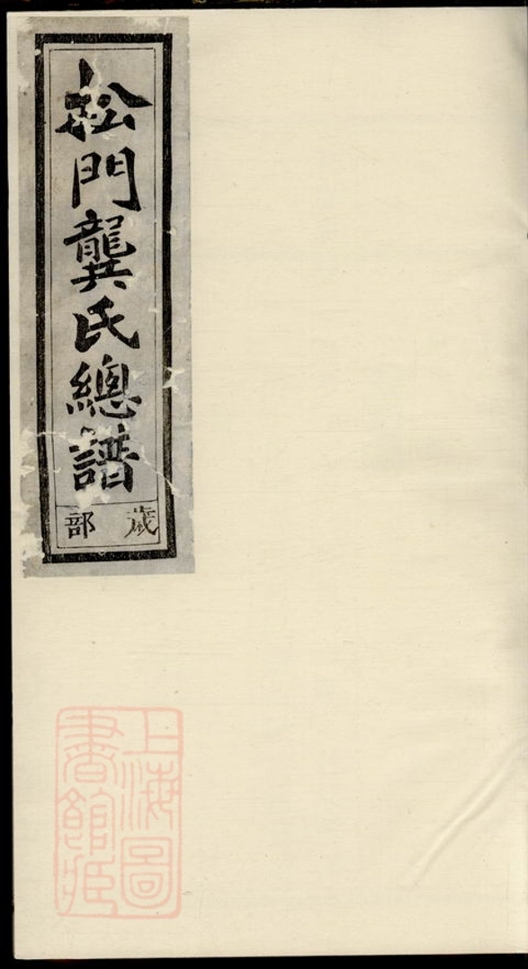 松門龔氏總譜
歲部
上海圖
書館藏